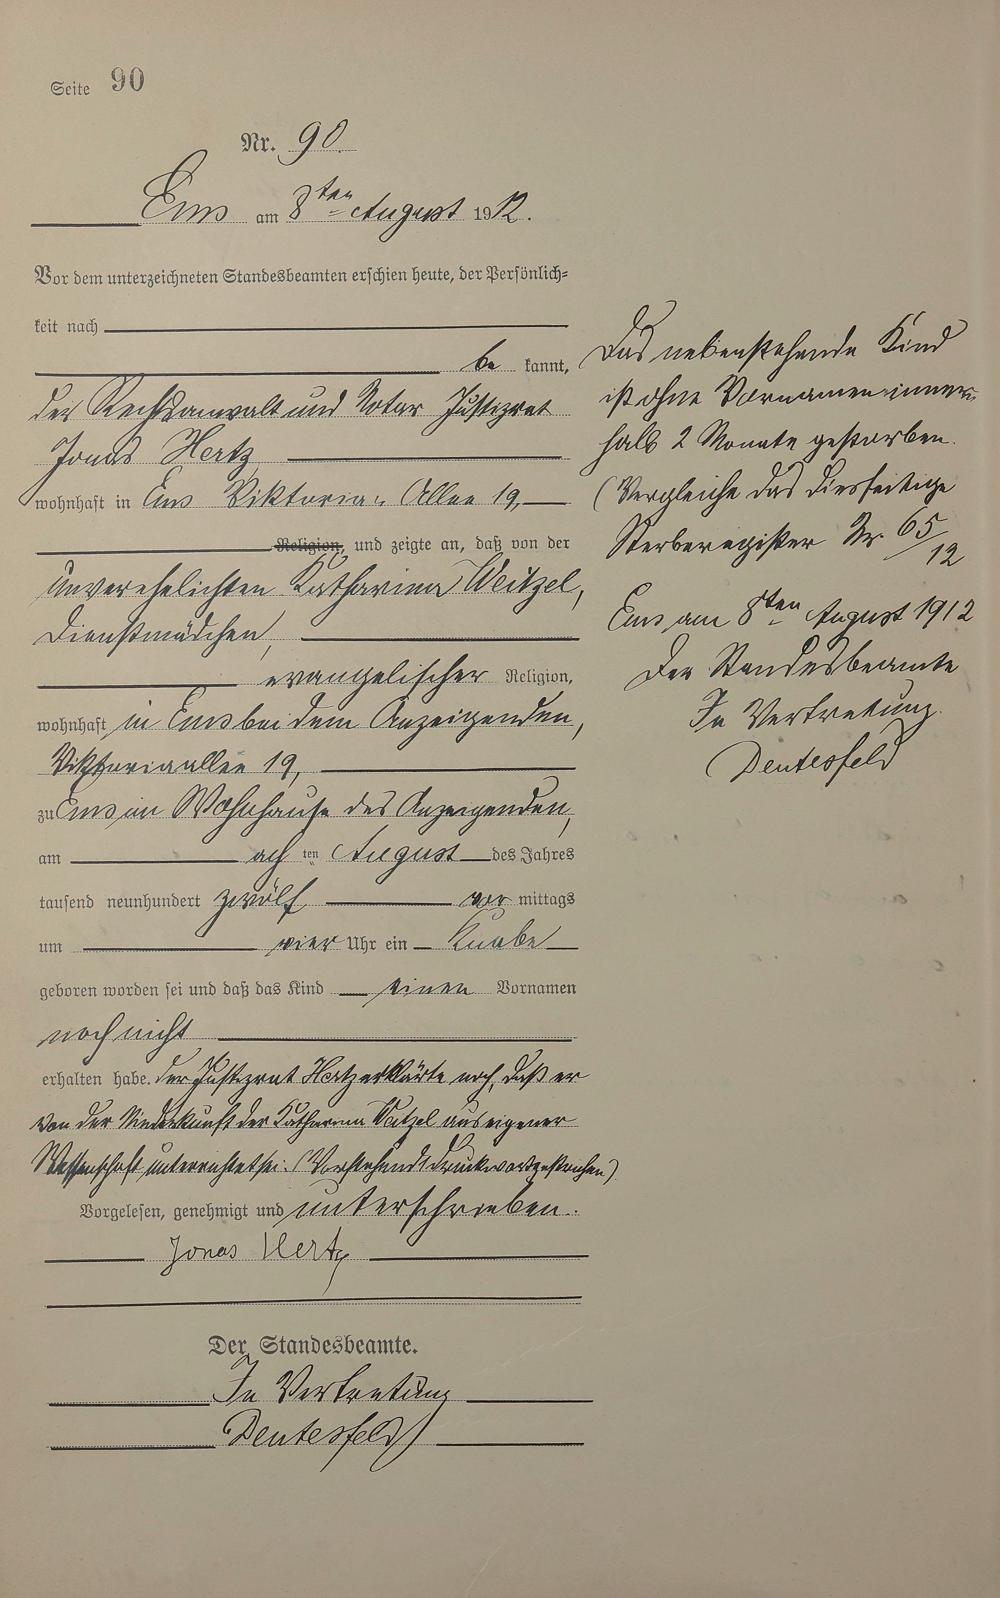 Seite 90
Nr. 90.
Ems am 8ten August 1912.
Vor dem unterzeichneten Standesbeamten erschien heute, der Persönlich=
keit nach
be kannt,
der Rechtsanwalt und Notar Justizrat
Jonas Hertz
wohnhaft in Ems Viktoria-Allee 19,
Religion, und zeigte an, daß von der
unverehelichten Katharina Weitzel,
Dienstmädchen,
evangelischer Religion,
wohnhaft in Ems bei dem Anzeigenden,
Viktoriaallee 19,
zu Ems im Wohnhause des Anzeigenden,
am acht ten August des Jahres
tausend neunhundert zwölf vor mittags
um vier Uhr ein Knabe
geboren worden sei und daß das Kind einen Vornamen
noch nicht
erhalten habe. Der Justizrat Hertz erklärte noch, daß er
von der Niederkunft der Katharina Weitzel aus eigener
Wissenschaft unterrichtet sei. (Vorstehend 1 Druckwort gestrichen)
Vorgelesen, genehmigt und unterschrieben.
Jonas Hertz
Der Standesbeamte.
In Vertretung
Deutesfeld
Das nebenstehende Kind
ist ohne Vornamen inner-
halb 2 Monate gestorben.
(Vergleiche das diesseitige
Sterberegister Nr. 65/12
Ems am 8ten August 1912
Der Standesbeamte
In Vertretung.
Deutesfeld